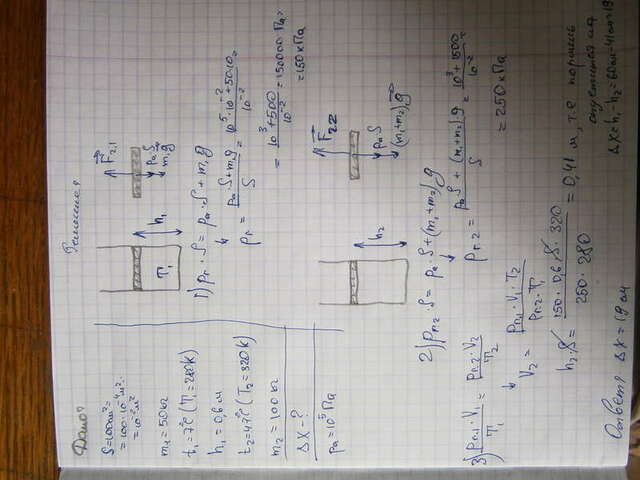 Дано:
S=100см²=
=100·10⁻⁴м²=
=10⁻²м²
m₁=50кг
t₁=7°C (T₁=280K)
h₁=0,6м
t₂=47°C (T₂=320K)
m₂=100кг
Δx-?
pₐ=10⁵Па
Решение
T₁
h₁
F⃗г.1
pₐS
m₁g
1) pг·S=pₐ·S+m₁g
↓
pг = (pₐ·S+m₁g)/S = (10⁵·10⁻²+50·10)/10⁻² =
= (10³+500)/10⁻² = 150000Па=
=150кПа
h₂
F⃗г.2
pₐS
(m₁+m₂)g⃗
2) pг.2·S=pₐ·S+(m₁+m₂)g
↓
pг.2 = (pₐ·S+(m₁+m₂)g)/S = (10³+1500)/10⁻² =
=250кПа
3) pг.1·V₁/T₁ = pг.2·V₂/T₂
↓
V₂ = pг.1·V₁·T₂/(pг.2·T₁)
h₂·S = 150·0,6·S·320/(250·280) = 0,41 м, т.е поршень
опустился на
Δx=h₁-h₂=60см-41см=19
Ответ: Δx=19см